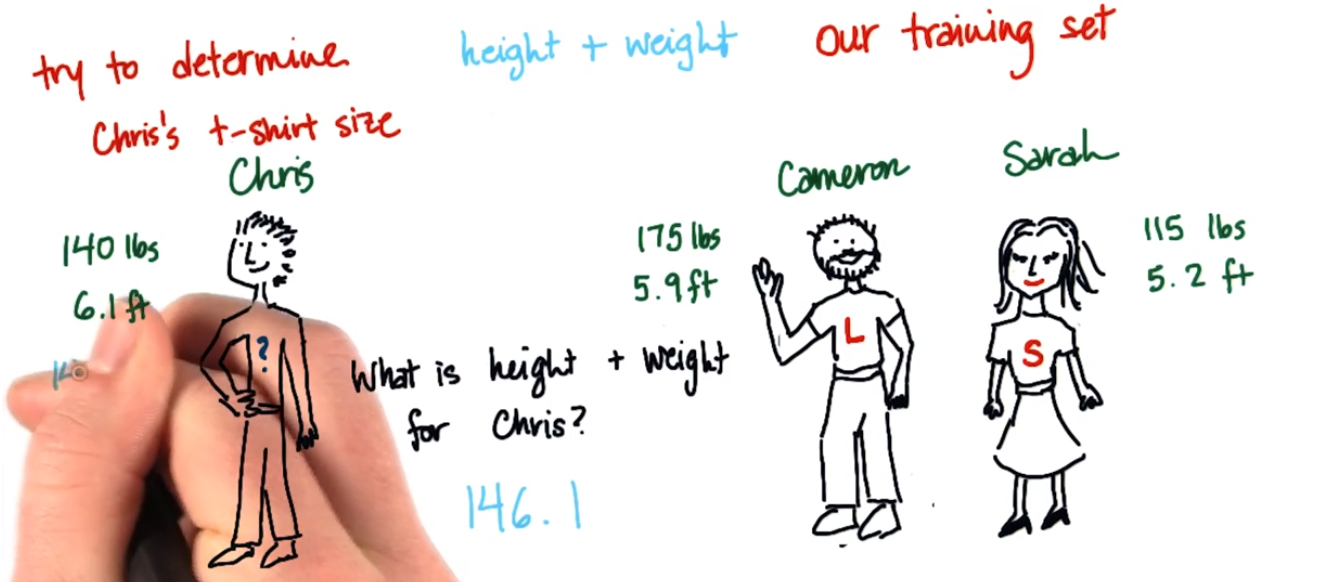 try to determine
Chris's t-shirt size
height + weight
our training set
Chris
140 lbs
6.1 ft
?
What is height + weight
for Chris?
146.1
Cameron
175 lbs
5.9 ft
L
Sarah
115 lbs
5.2 ft
S